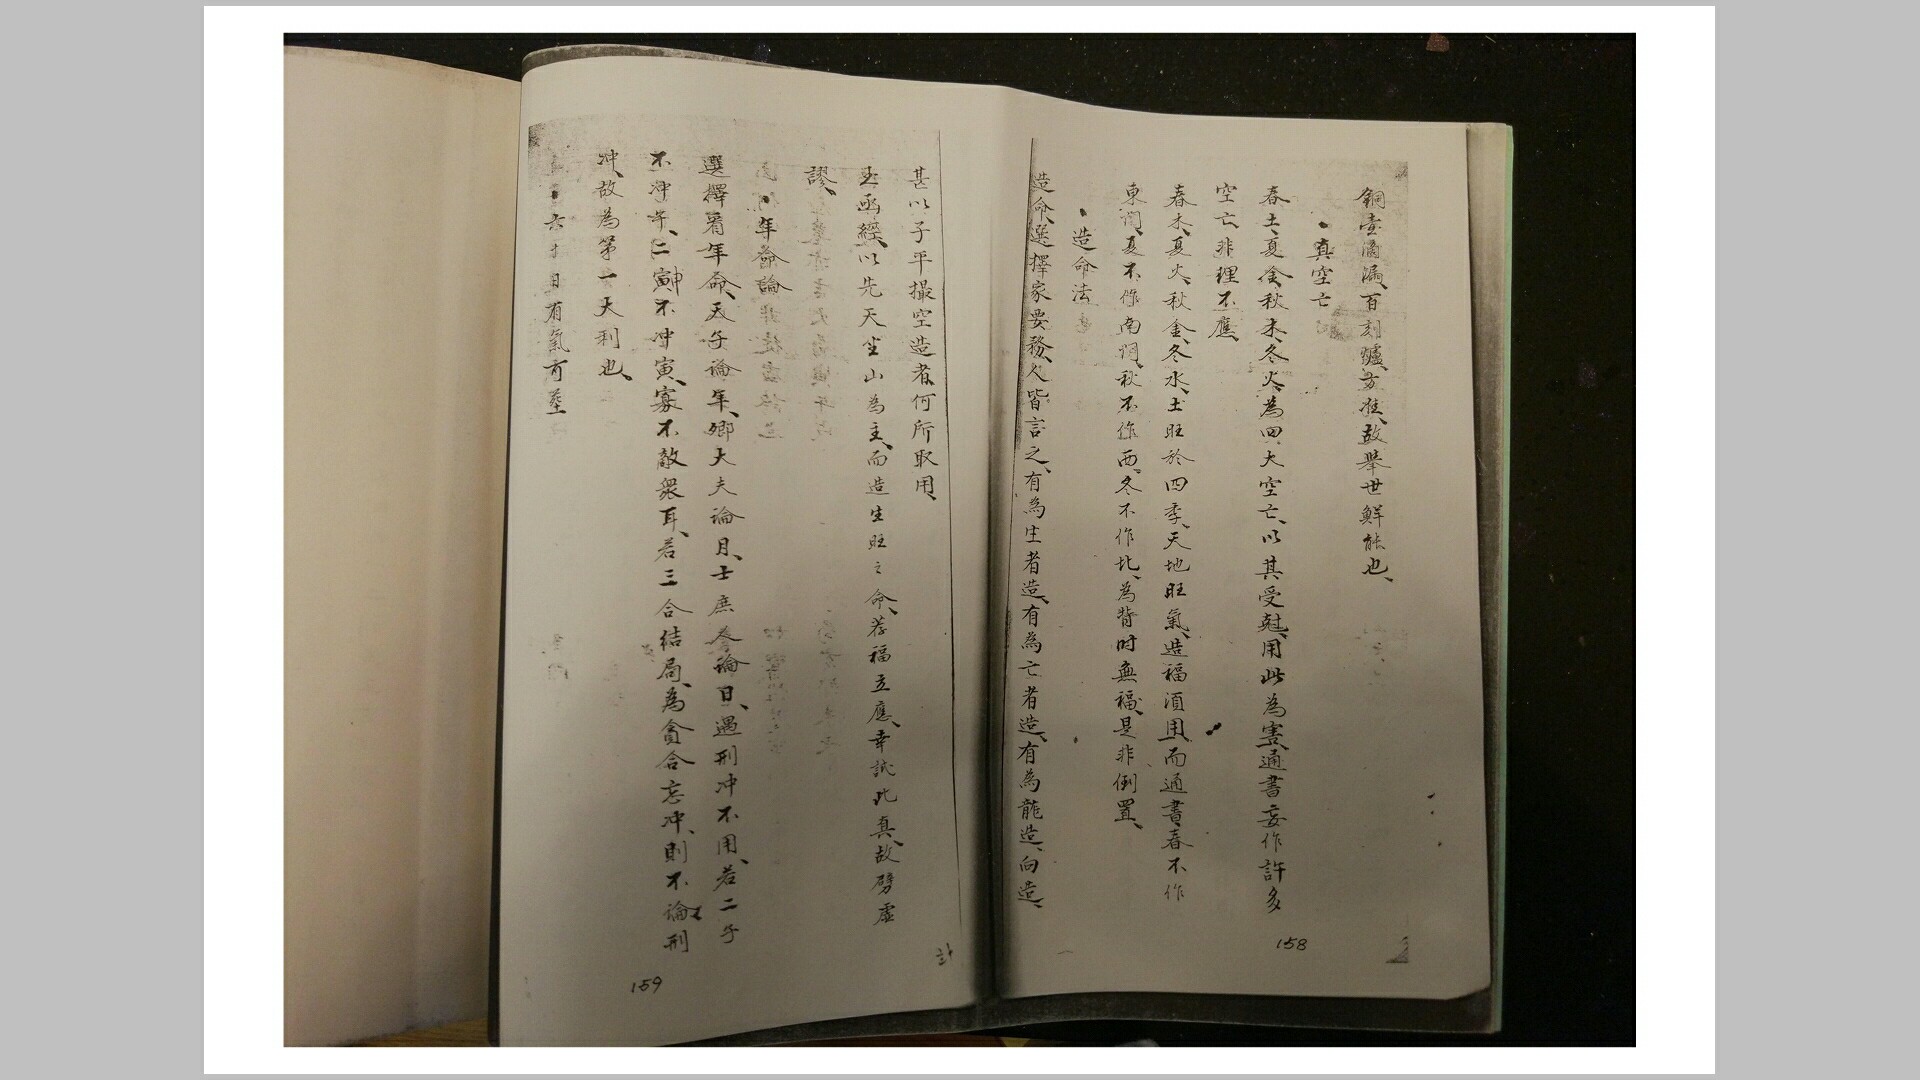 銅壺滴漏、百刻爐、方准、故舉世鮮能也、
•真空亡
春土、夏金、秋木、冬火、為四大空亡、以其受尅、用此為害、通書妄作許多
空亡、非理不應、
春木、夏火、秋金、冬水、土旺於四季、天地旺氣、造福須用、而通書春不作
東閞、夏不作南閞、秋不作西、冬不作北、為背时無福、是非倒置、
•造命法
造命、選擇家要務、人皆言之、有為生者造、有為亡者造、有為龍造、向造、
158
甚以子平撮空造者、何所取用、
玉函經、以先天坐山為主、而造生旺之命、荐福立應、幸試此真、故劈虛
謬、
•年命論
選擇看年命、天子論年、卿大夫論月、士庶人論日、遇刑冲不用、若二子
不冲午、二寅申不冲寅、寡不敵衆耳、若三合結局、為貪合忘冲、則不論刑
冲、故為第一大利也、
•六十日有氣可塟
159